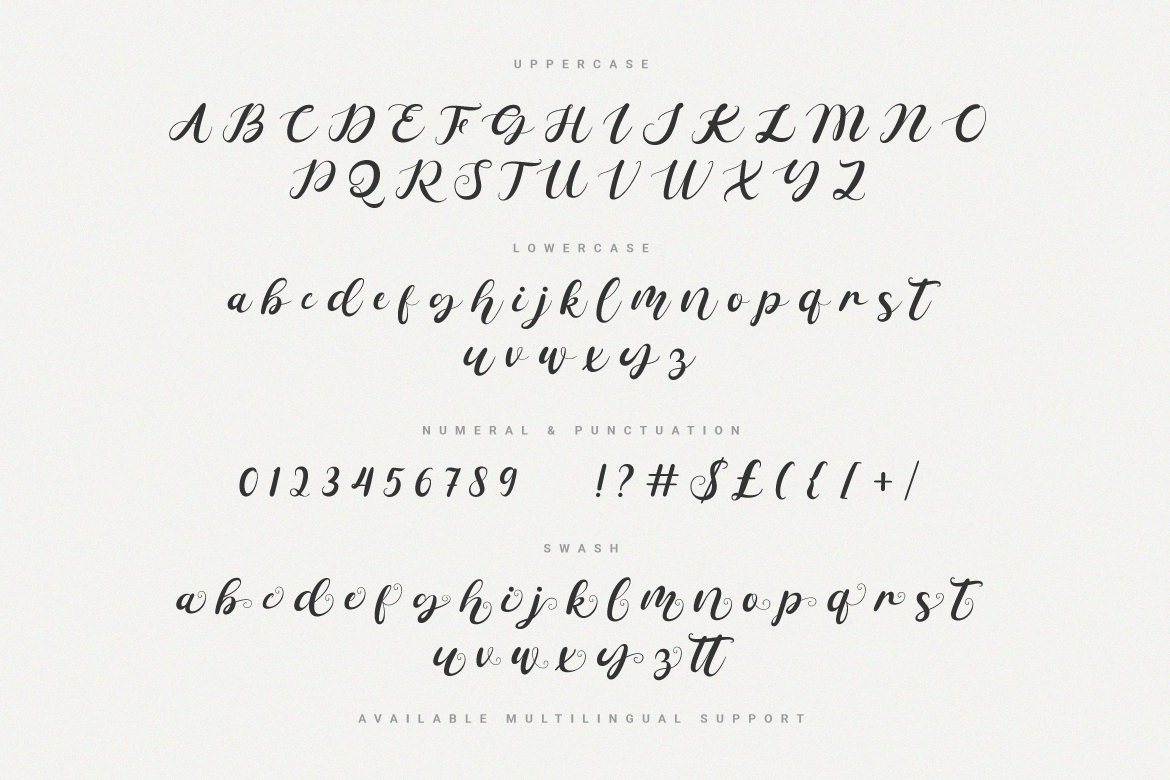 UPPERCASE
A B C D E F G H I J K L M N O
P Q R S T U V W X Y Z
LOWERCASE
a b c d e f g h i j k l m n o p q r s t
u v w x y z
NUMERAL & PUNCTUATION
0 1 2 3 4 5 6 7 8 9 ! ? # $ £ ( { [ + /
SWASH
a b c d e f g h i j k l m n o p q r s t
u v w x y z tt
AVAILABLE MULTILINGUAL SUPPORT